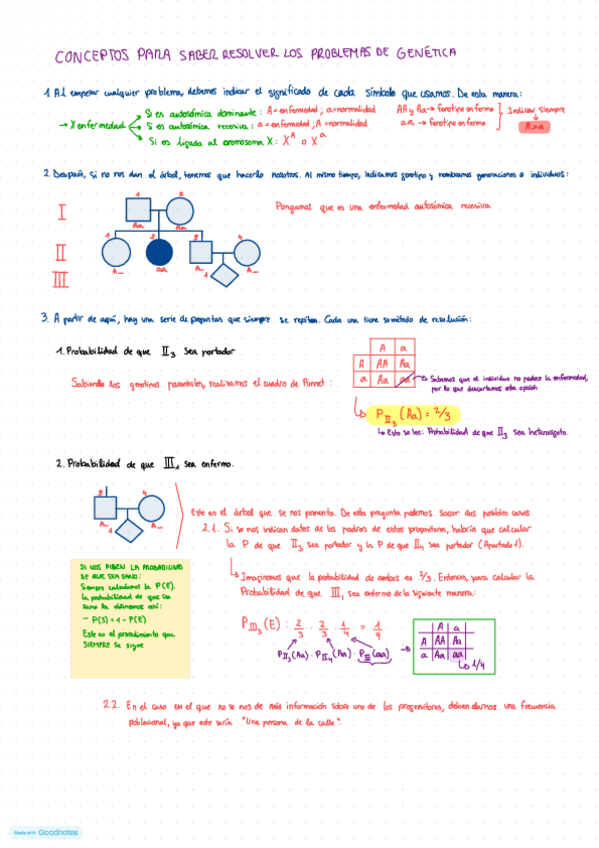 CONCEPTOS PARA SABER RESOLVER LOS PROBLEMAS DE GENÉTICA
1. Al empezar cualquier problema, debemos indicar el significado de cada símbolo que usamos. De esta manera:
→ X enfermedad
Si es autosómica dominante: A = enfermedad; a = normalidad
Si es autosómica recesiva: a = enfermedad; A = normalidad
Si es ligada al cromosoma X: X^A o X^a
AA y Aa → fenotipo enfermo
aa → fenotipo enfermo
Indicar siempre
A>a
2. Después, si no nos dan el árbol, tenemos que hacerlo nosotros. Al mismo tiempo, indicamos genotipo y nombramos generaciones e individuos:
Pongamos que es una enfermedad autosómica recesiva
I
1 2
Aa Aa
II
1 2 3 4
A_ aa A_ A_
III
1
3. A partir de aquí, hay una serie de preguntas que siempre se repiten. Cada una tiene su método de resolución:
1. Probabilidad de que II3 sea portador
Sabiendo los genotipos parentales, realizamos el cuadro de Punnet:
A a
A AA Aa
a Aa aa
→ Sabemos que el individuo no padece la enfermedad,
por lo que descartamos esta opción
P II3 (Aa) = 2/3
↳ Esto se lee: Probabilidad de que II3 sea heterocigoto.
2. Probabilidad de que III1 sea enfermo.
3 4
A_ A_
1
Este es el árbol que se nos presenta. De esta pregunta podemos sacar dos posibles casos
2.1. Si se nos indican datos de los padres de estos progenitores, habría que calcular
la P de que II3 sea portador y la P de que II4 sea portador (Apartado 1).
↳ Imaginemos que la probabilidad de ambos es 2/3. Entonces, para calcular la
Probabilidad de que III1 sea enfermo de la siguiente manera:
SI NOS PIDEN LA PROBABILIDAD
DE QUE SEA SANO:
Siempre calculamos la P(E).
La probabilidad de que sea
sano la obtenemos así:
- P(S) = 1 - P(E)
Este es el procedimiento que
SIEMPRE se sigue
P III3 (E): 2/3 · 2/3 · 1/4 = 1/9
P II3 (Aa) · P II4 (Aa) · P III (aa)
A a
A AA Aa
a Aa aa
1/4
2.2. En el caso en el que no se nos dé más información sobre uno de los progenitores, deben darnos una frecuencia
poblacional, ya que este sería "Una persona de la calle".
Made with Goodnotes